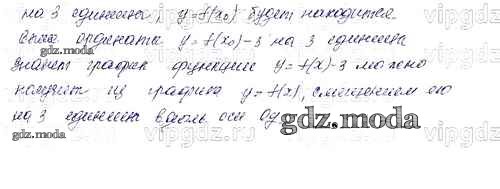 на 3 единицы, y=f(x₀) будет находится
ниже ордината y=f(x₀)-3 на 3 единицы
значит график функции y=f(x)-3 можно
получит из графика y=f(x), смещением его
на 3 единицы вдоль оси Oy
gdz.moda
gdz.moda
vipgdz.ru
vipgdz.ru
vipgdz